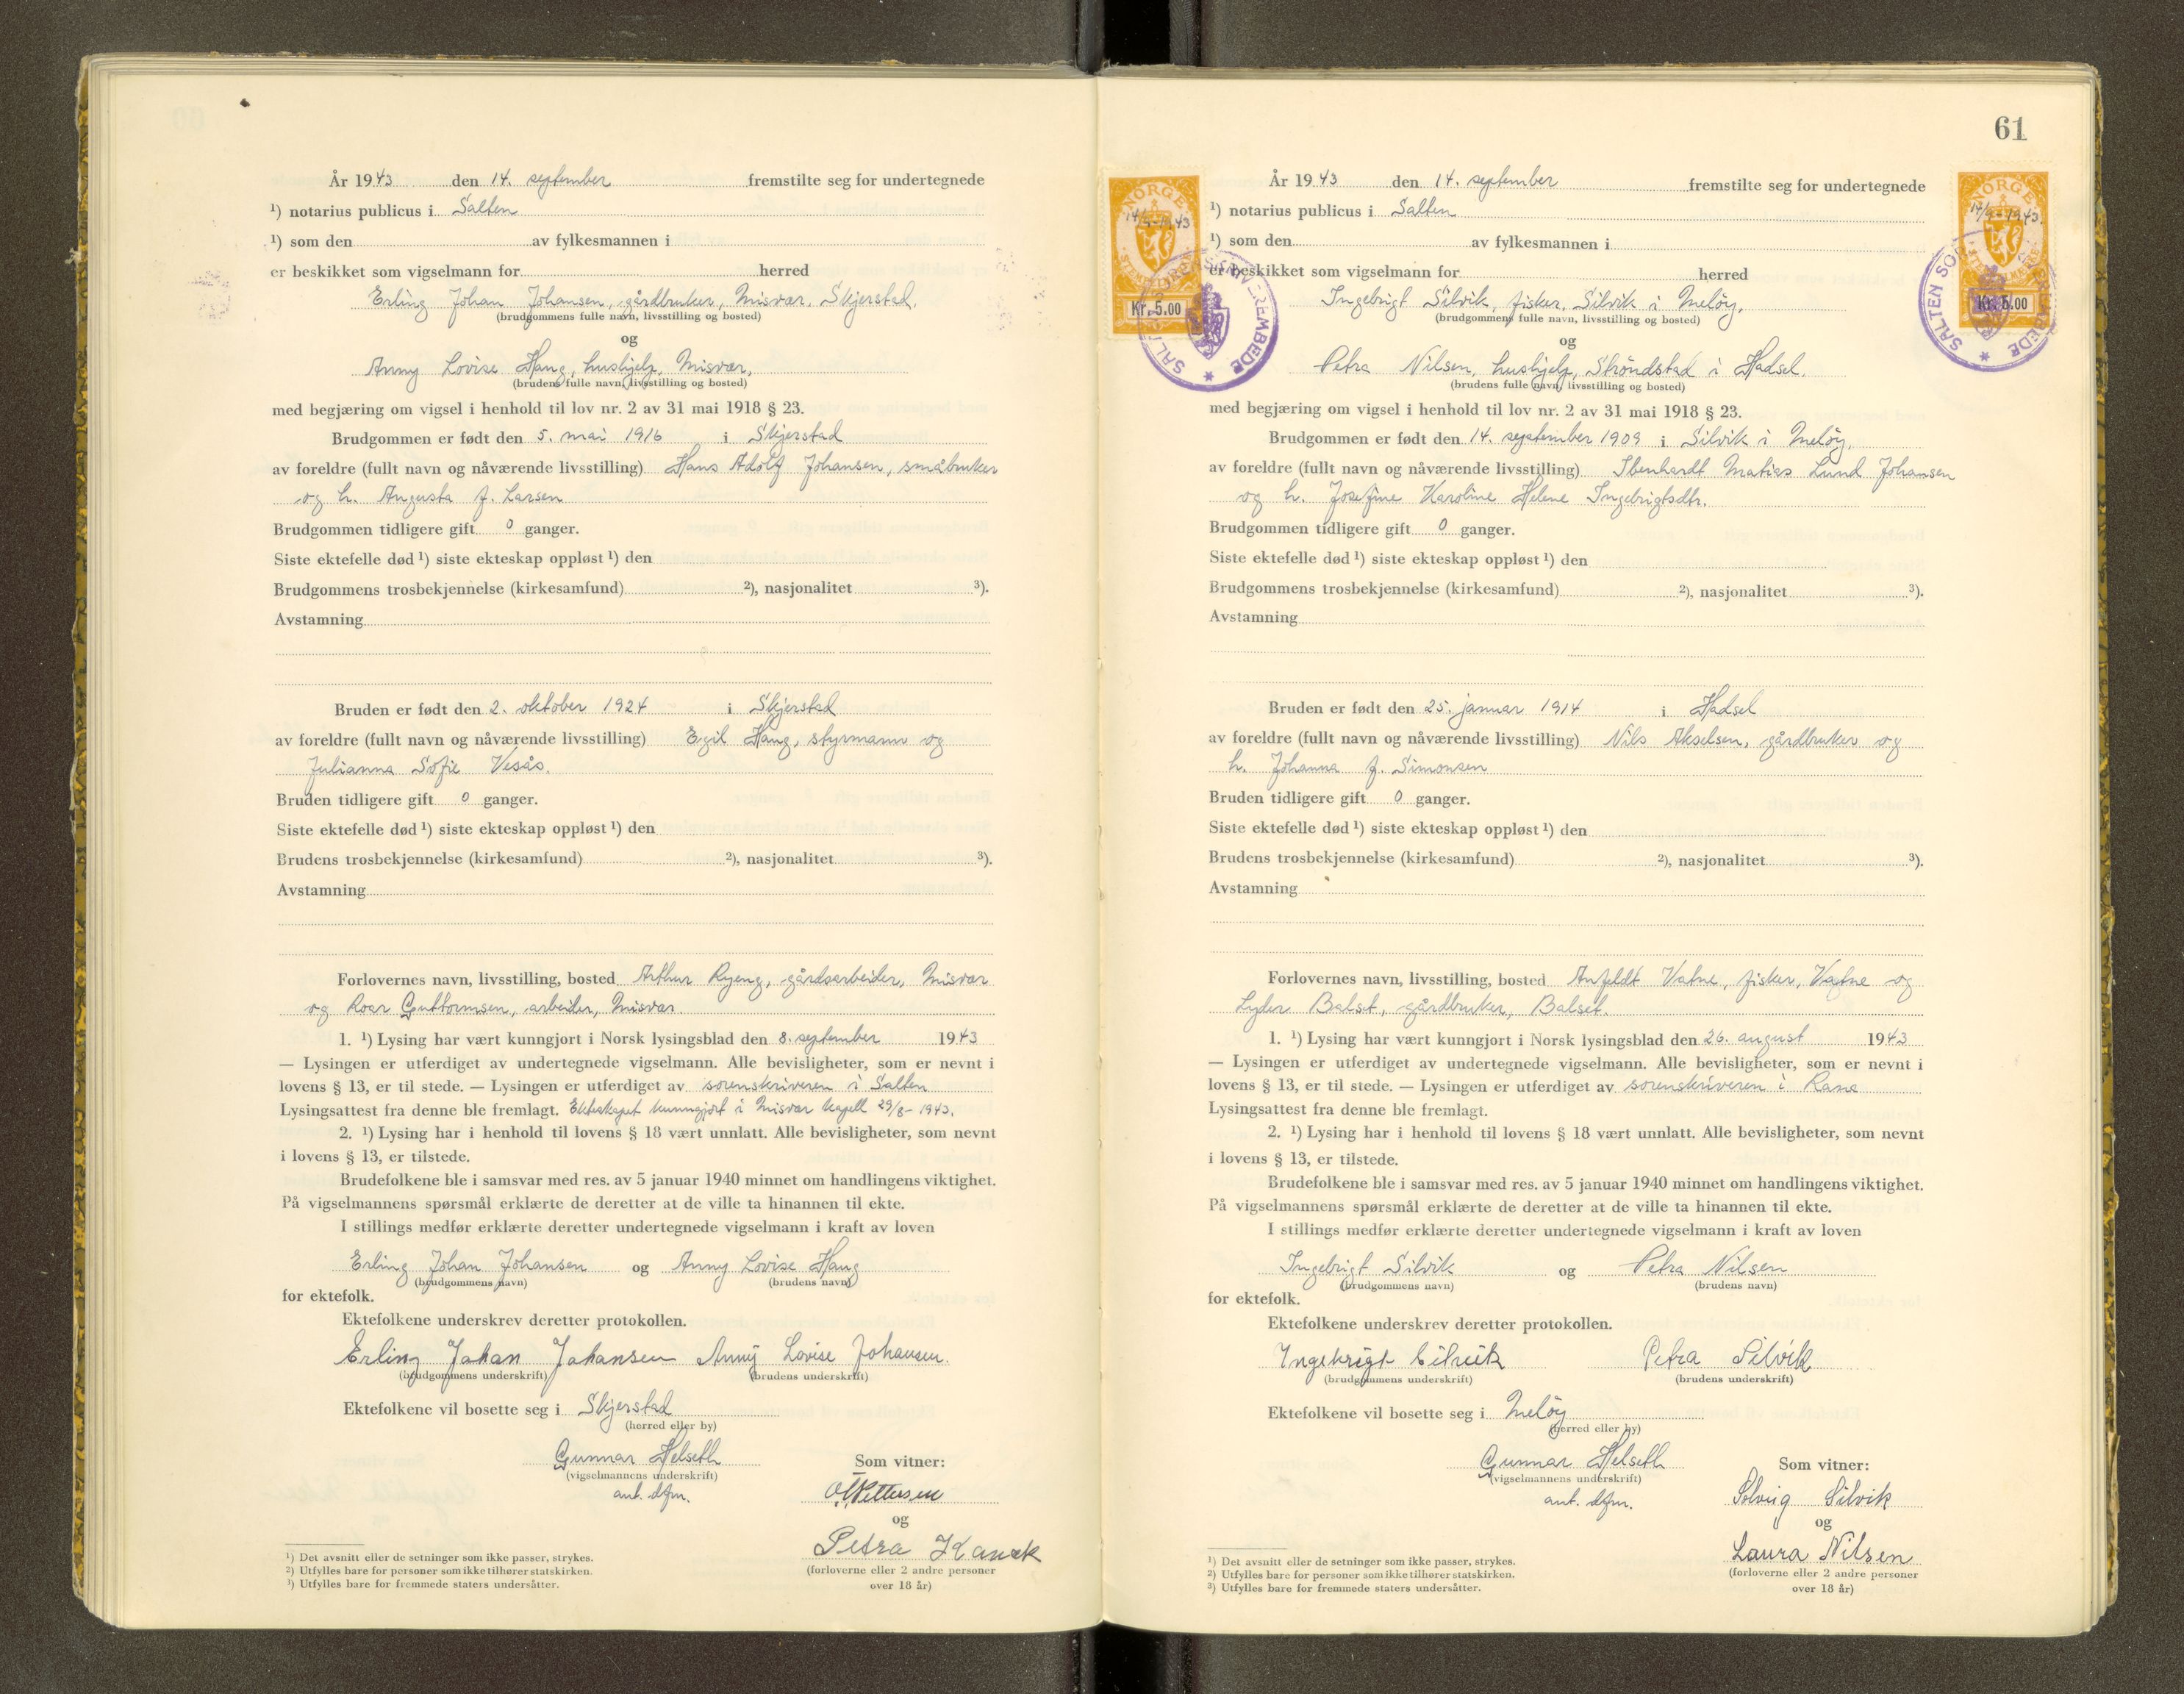 År 1943 den 14. september fremstilte seg for undertegnede
¹) notarius publicus i Salten
¹) som den av fylkesmannen i
er beskikket som vigselmann for herred
Erling Johan Johansen, gårdbruker, Misvær, Skjerstad.
(brudgommens fulle navn, livsstilling og bosted)
og
Anny Lovise Haug, hushjelp, Misvær,
(brudens fulle navn, livsstilling og bosted)
med begjæring om vigsel i henhold til lov nr. 2 av 31 mai 1918 § 23.
Brudgommen er født den 5. mai 1916 i Skjerstad
av foreldre (fullt navn og nåværende livsstilling) Hans Adolf Johansen, småbruker
og h. Augusta f. Larsen
Brudgommen tidligere gift 0 ganger.
Siste ektefelle død ¹) siste ekteskap oppløst ¹) den
Brudgommens trosbekjennelse (kirkesamfund) ²), nasjonalitet ³).
Avstamning
Bruden er født den 2. oktober 1924 i Skjerstad
av foreldre (fullt navn og nåværende livsstilling) Egil Haug, styrmann og
Julianna Sofie Vesås.
Bruden tidligere gift 0 ganger.
Siste ektefelle død ¹) siste ekteskap oppløst ¹) den
Brudens trosbekjennelse (kirkesamfund) ²), nasjonalitet ³).
Avstamning
Forlovernes navn, livsstilling, bosted Arthur Ryeng, gårdsarbeider, Misvær
og Roar Guttormsen, arbeider, Misvær
1. ¹) Lysing har vært kunngjort i Norsk lysingsblad den 8. september 1943
— Lysingen er utferdiget av undertegnede vigselmann. Alle bevisligheter, som er nevnt i
lovens § 13, er til stede. — Lysingen er utferdiget av sorenskriveren i Salten
Lysingsattest fra denne ble fremlagt. Ekteskapet kunngjort i Misvær kapell 29/8-1943.
2. ¹) Lysing har i henhold til lovens § 18 vært unnlatt. Alle bevisligheter, som nevnt
i lovens § 13, er tilstede.
Brudefolkene ble i samsvar med res. av 5 januar 1940 minnet om handlingens viktighet.
På vigselmannens spørsmål erklærte de deretter at de ville ta hinannen til ekte.
I stillings medfør erklærte deretter undertegnede vigselmann i kraft av loven
Erling Johan Johansen og Anny Lovise Haug
(brudgommens navn) (brudens navn)
for ektefolk.
Ektefolkene underskrev deretter protokollen.
Erling Johan Johansen Anny Lovise Johansen.
(brudgommens underskrift) (brudens underskrift)
Ektefolkene vil bosette seg i Skjerstad
(herred eller by)
Gunnar Helseth Som vitner:
(vigselmannens underskrift)
aut. dfm. Pettersen
og
Petra
(forloverne eller 2 andre personer
over 18 år)
¹) Det avsnitt eller de setninger som ikke passer, strykes.
²) Utfylles bare for personer som ikke tilhører statskirken.
³) Utfylles bare for fremmede staters undersåtter.
61
NORGE
14/9-1943
STEMPELMERKE
Kr. 5.00
SALTEN SORENSKRIVEREMBEDE
NORGE
14/9-1943.
STEMPELMERKE
Kr. 5.00
SALTEN SORENSKRIVEREMBEDE
År 1943 den 14. september fremstilte seg for undertegnede
¹) notarius publicus i Salten
¹) som den av fylkesmannen i
er beskikket som vigselmann for herred
Ingebrigt Silvik, fisker, Silvik i Meløy,
(brudgommens fulle navn, livsstilling og bosted)
og
Petra Nilsen, hushjelp, Strøndstad i Hadsel.
(brudens fulle navn, livsstilling og bosted)
med begjæring om vigsel i henhold til lov nr. 2 av 31 mai 1918 § 23.
Brudgommen er født den 14. september 1909 i Silvik i Meløy,
av foreldre (fullt navn og nåværende livsstilling) Ibenhardt Matias Lund Johansen
og h. Josefine Karoline Helene Ingebrigtsdtr.
Brudgommen tidligere gift 0 ganger.
Siste ektefelle død ¹) siste ekteskap oppløst ¹) den
Brudgommens trosbekjennelse (kirkesamfund) ²), nasjonalitet ³).
Avstamning
Bruden er født den 25. januar 1914 i Hadsel
av foreldre (fullt navn og nåværende livsstilling) Nils Akselsen, gårdbruker og
h. Johanna f. Simonsen
Bruden tidligere gift 0 ganger.
Siste ektefelle død ¹) siste ekteskap oppløst ¹) den
Brudens trosbekjennelse (kirkesamfund) ²), nasjonalitet ³).
Avstamning
Forlovernes navn, livsstilling, bosted Anfeldt Vatne, fisker, Vatne og
Lyder Balset, gårdbruker, Balset.
1. ¹) Lysing har vært kunngjort i Norsk lysingsblad den 26. august 1943
— Lysingen er utferdiget av undertegnede vigselmann. Alle bevisligheter, som er nevnt i
lovens § 13, er til stede. — Lysingen er utferdiget av sorenskriveren i Rana
Lysingsattest fra denne ble fremlagt.
2. ¹) Lysing har i henhold til lovens § 18 vært unnlatt. Alle bevisligheter, som nevnt
i lovens § 13, er tilstede.
Brudefolkene ble i samsvar med res. av 5 januar 1940 minnet om handlingens viktighet.
På vigselmannens spørsmål erklærte de deretter at de ville ta hinannen til ekte.
I stillings medfør erklærte deretter undertegnede vigselmann i kraft av loven
Ingebrigt Silvik og Petra Nilsen
(brudgommens navn) (brudens navn)
for ektefolk.
Ektefolkene underskrev deretter protokollen.
Ingebrigt Silvik Petra Silvik
(brudgommens underskrift) (brudens underskrift)
Ektefolkene vil bosette seg i Meløy
(herred eller by)
Gunnar Helseth Som vitner:
(vigselmannens underskrift)
aut. dfm. Solveig Silvik
og
Laura Nilsen
(forloverne eller 2 andre personer
over 18 år)
¹) Det avsnitt eller de setninger som ikke passer, strykes.
²) Utfylles bare for personer som ikke tilhører statskirken.
³) Utfylles bare for fremmede staters undersåtter.